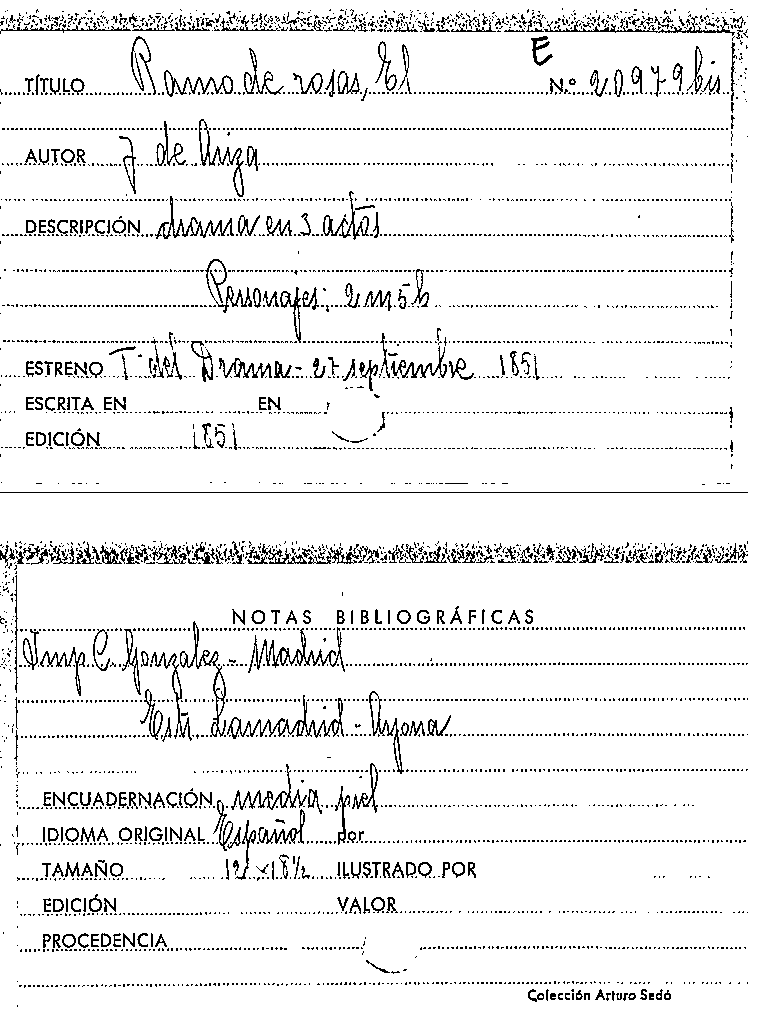 E
TÍTULO Ramo de rosas, El Nº 20979 bis
AUTOR J de Ariza
DESCRIPCIÓN drama en 3 actos
Personajes: 2 m 5 h
ESTRENO Tº del Drama - 27 septiembre 1851
ESCRITA EN EN
EDICIÓN 1851
NOTAS BIBLIOGRÁFICAS
Imp C. Gonzalez - Madrid
Estr. Lamadrid - Arjona
ENCUADERNACIÓN media piel
IDIOMA ORIGINAL Español por
TAMAÑO 12 x 18½ ILUSTRADO POR
EDICIÓN VALOR
PROCEDENCIA
Colección Arturo Sedó